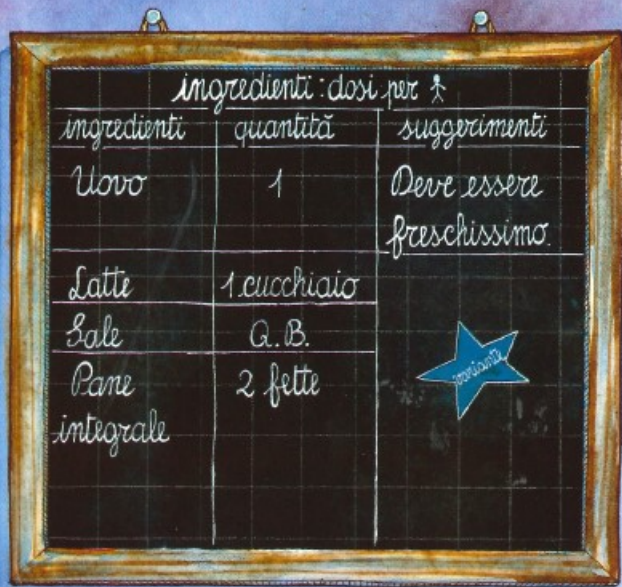 ingredienti: dosi per
ingredienti quantità suggerimenti
Uovo 1 Deve essere
freschissimo.
Latte 1 cucchiaio
Sale Q.B.
variante
Pane 2 fette
integrale